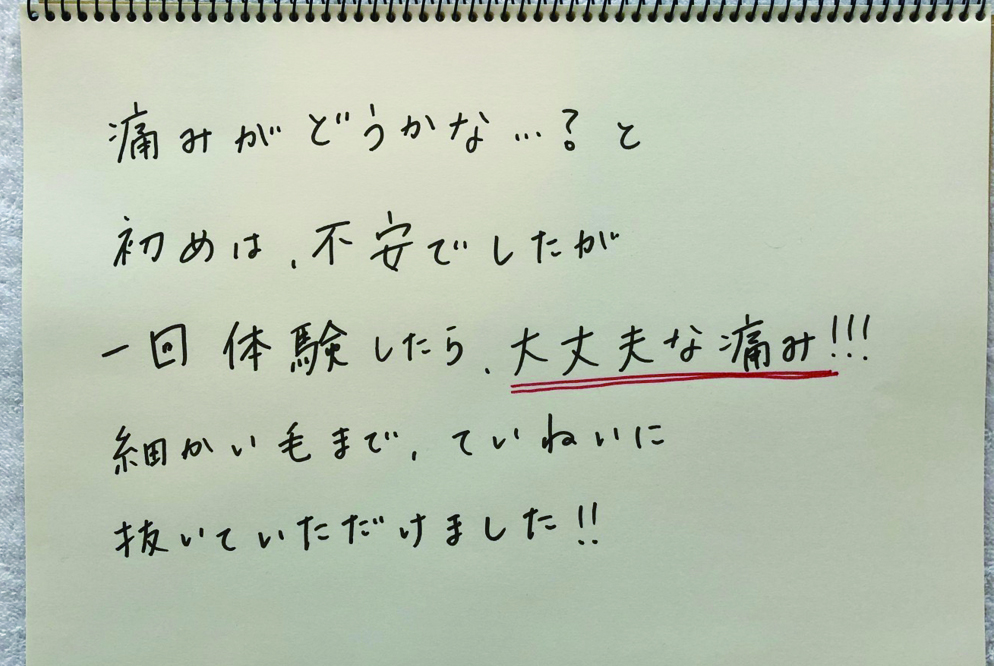 痛みがどうかな…?と
初めは、不安でしたが
一回体験したら、大丈夫な痛み!!!
細かい毛まで、ていねいに
抜いていただけました!!